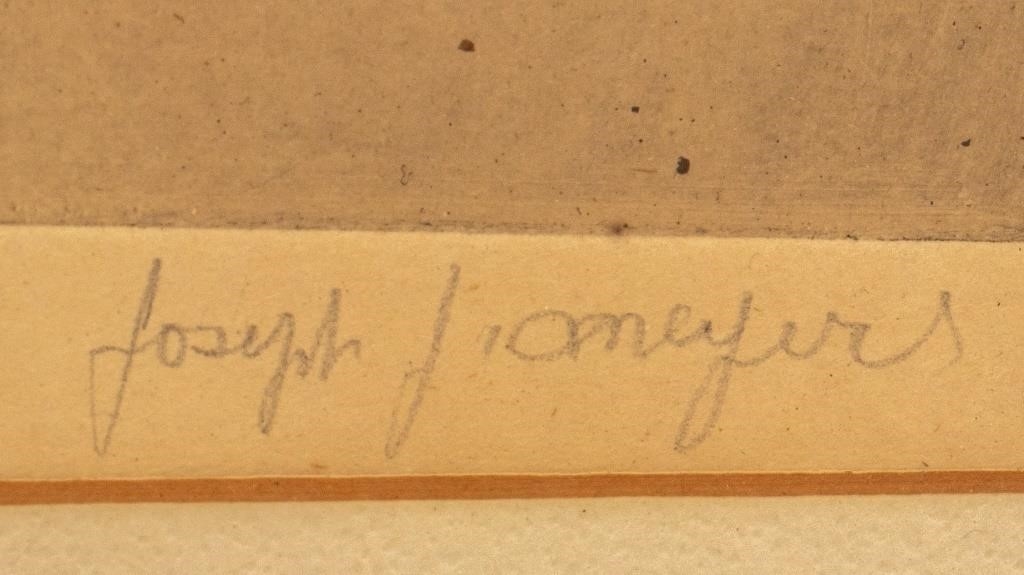 Joseph J. Meyers